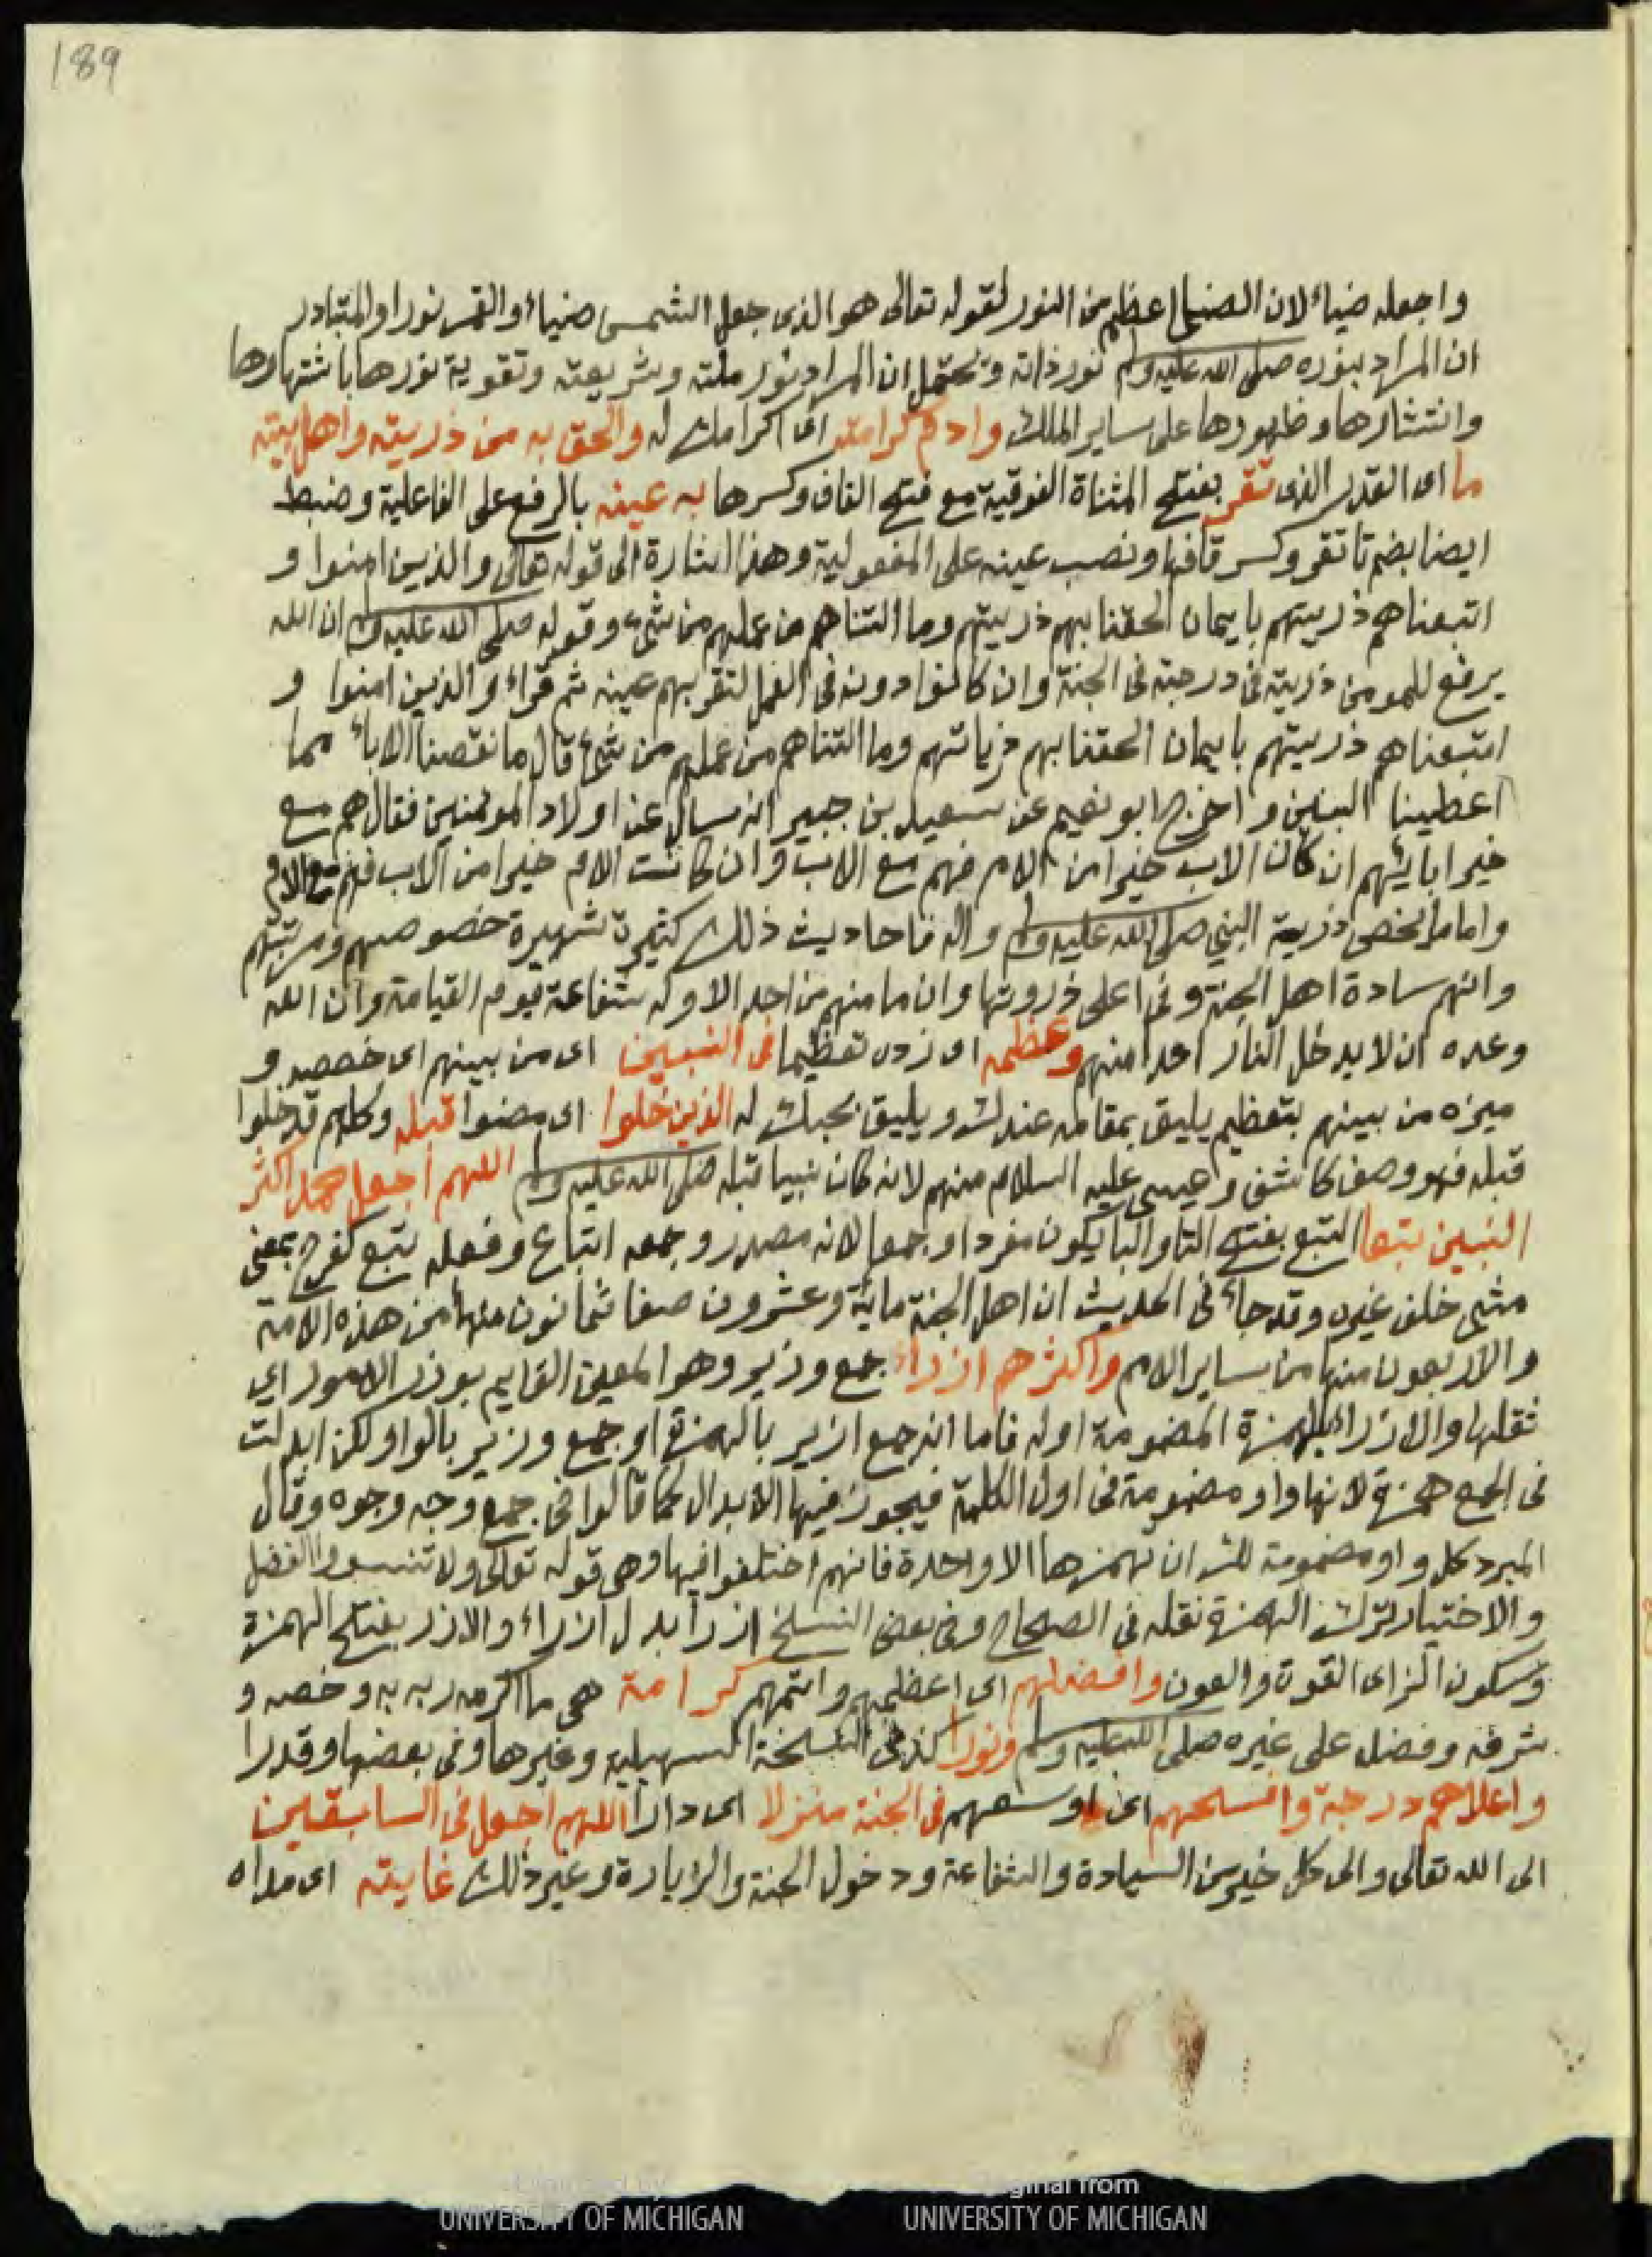 189
واجعله ضياء لان الضياء اعظم من النور لقوله تعالى هو الذى جعل الشمس ضياءً والقمر نورا والمتبادر
ان المراد بنوره صلى الله عليه وسلم نور ذاته ويحتمل ان المراد نور ملته وشريعته وتقوية نورها باشتهارها
وانتشارها وظهورها على ساير الملل وادم كرامته اى اكرامك له والحق به من ذريته واهل بيته
ما اى القدر الذى تقر بفتح المثناة الفوقية مع فتح القاف وكسرها به عينه بالرفع على الفاعلية وضبط
ايضا بضم تا تقر وكسر قافها ونصب عينه على المفعولية وهذا اشارة الى قوله تعالى والذين امنوا و
اتبعناهم ذريتهم بايمان الحقنا بهم ذريتهم وما التناهم من عملهم من شىء وقوله صلى الله عليه وسلم ان الله
يرفع للمومن ذريته فى درجته فى الجنة وان كانوا دونه فى العمل لتقر بهم عينه ثم قراء والذين امنوا و
اتبعناهم ذريتهم بايمان الحقنا بهم ذرياتهم وما التناهم من عملهم من شىء قال ما نقصنا الاباء مما
اعطينا البنين واخرج ابو نعيم عن سعيد بن جبير انه سال عن اولاد المومنين فقال هم مع
خير ابائهم ان كان الاب خيرا من الام فهم مع الاب وان كانت الام خيرا من الاب فهم مع الام
واما ما يخص ذرية النبي صلى الله عليه وسلم واله فاحاديث ذلك كثيرة شهيرة خصوصهم ومرتبتهم
وانهم سادة اهل الجنة وفى اعلى ذروتها وان ما منهم من احد الا وله شفاعة يوم القيامة وان الله
وعده ان لا يدخل النار احدا منهم وعظمه اى زده تعظيما فى النبيين اى من بينهم اى خصصه و
ميزه من بينهم بتعظيم يليق بمقامه عندك ويليق بحبك له الذين خلوا اى مضوا قبله وكلهم قد خلوا
قبله فهو وصف كاشف وعيسى عليه السلام منهم لانه كان نبيا قبله صلى الله عليه وسلم اللهم اجعل محمد اكثر
النبيين تبعا التبع بفتح التا والبا يكون مفردا وجمعا لانه مصدر وجمعه اتباع وفعله تبع كفرح بمعنى
مشى خلف غيره وقد جاء فى الحديث ان اهل الجنة ماية وعشرون صفا ثمانون منها من هذه الامة
والاربعون منها من ساير الامم واكثرهم ازراء جمع وزير وهو المعين القايم بوزر الامور اي
ثقلها والازراء بالهمزة المضمومة اوله فاما انه جمع ازير بالهمزة او جمع وزير بالواو لكن ابدلت
فى الجمع همزة لانها واو مضمومة فى اول الكلمة فيجوز فيها الابدال كما قالوا فى جمع وجه وجوه وقال
المبرد كل واو مضمومة لك ان تهمزها الا واحدة فانهم اختلفوا فيها وهى قوله تعالى ولا تنسوا الفضل
والاختيار ترك الهمزة نقله فى الصحاح وفى بعض النسخ ازرا بدل ازراء والازر بفتح الهمزة
وسكون الزاى القوة والعون وافضلهم اى اعظمهم واتمهم كرامة هى ما اكرمه ربه به وخصه و
شرفه وفضله على غيره صلى الله عليه وسلم ونورا كذا فى النسخة السهيلية وغيرها وفى بعضها وقدرا
واعلاهم درجة وافسحهم اى اوسعهم فى الجنة منزلا اى دارا اللهم اجعل فى السابقين
الى الله تعالى والى كل خير من السيادة والشفاعة ودخول الجنة والزيارة وغير ذلك غايته اى مداه
Digitized by
UNIVERSITY OF MICHIGAN
Original from
UNIVERSITY OF MICHIGAN